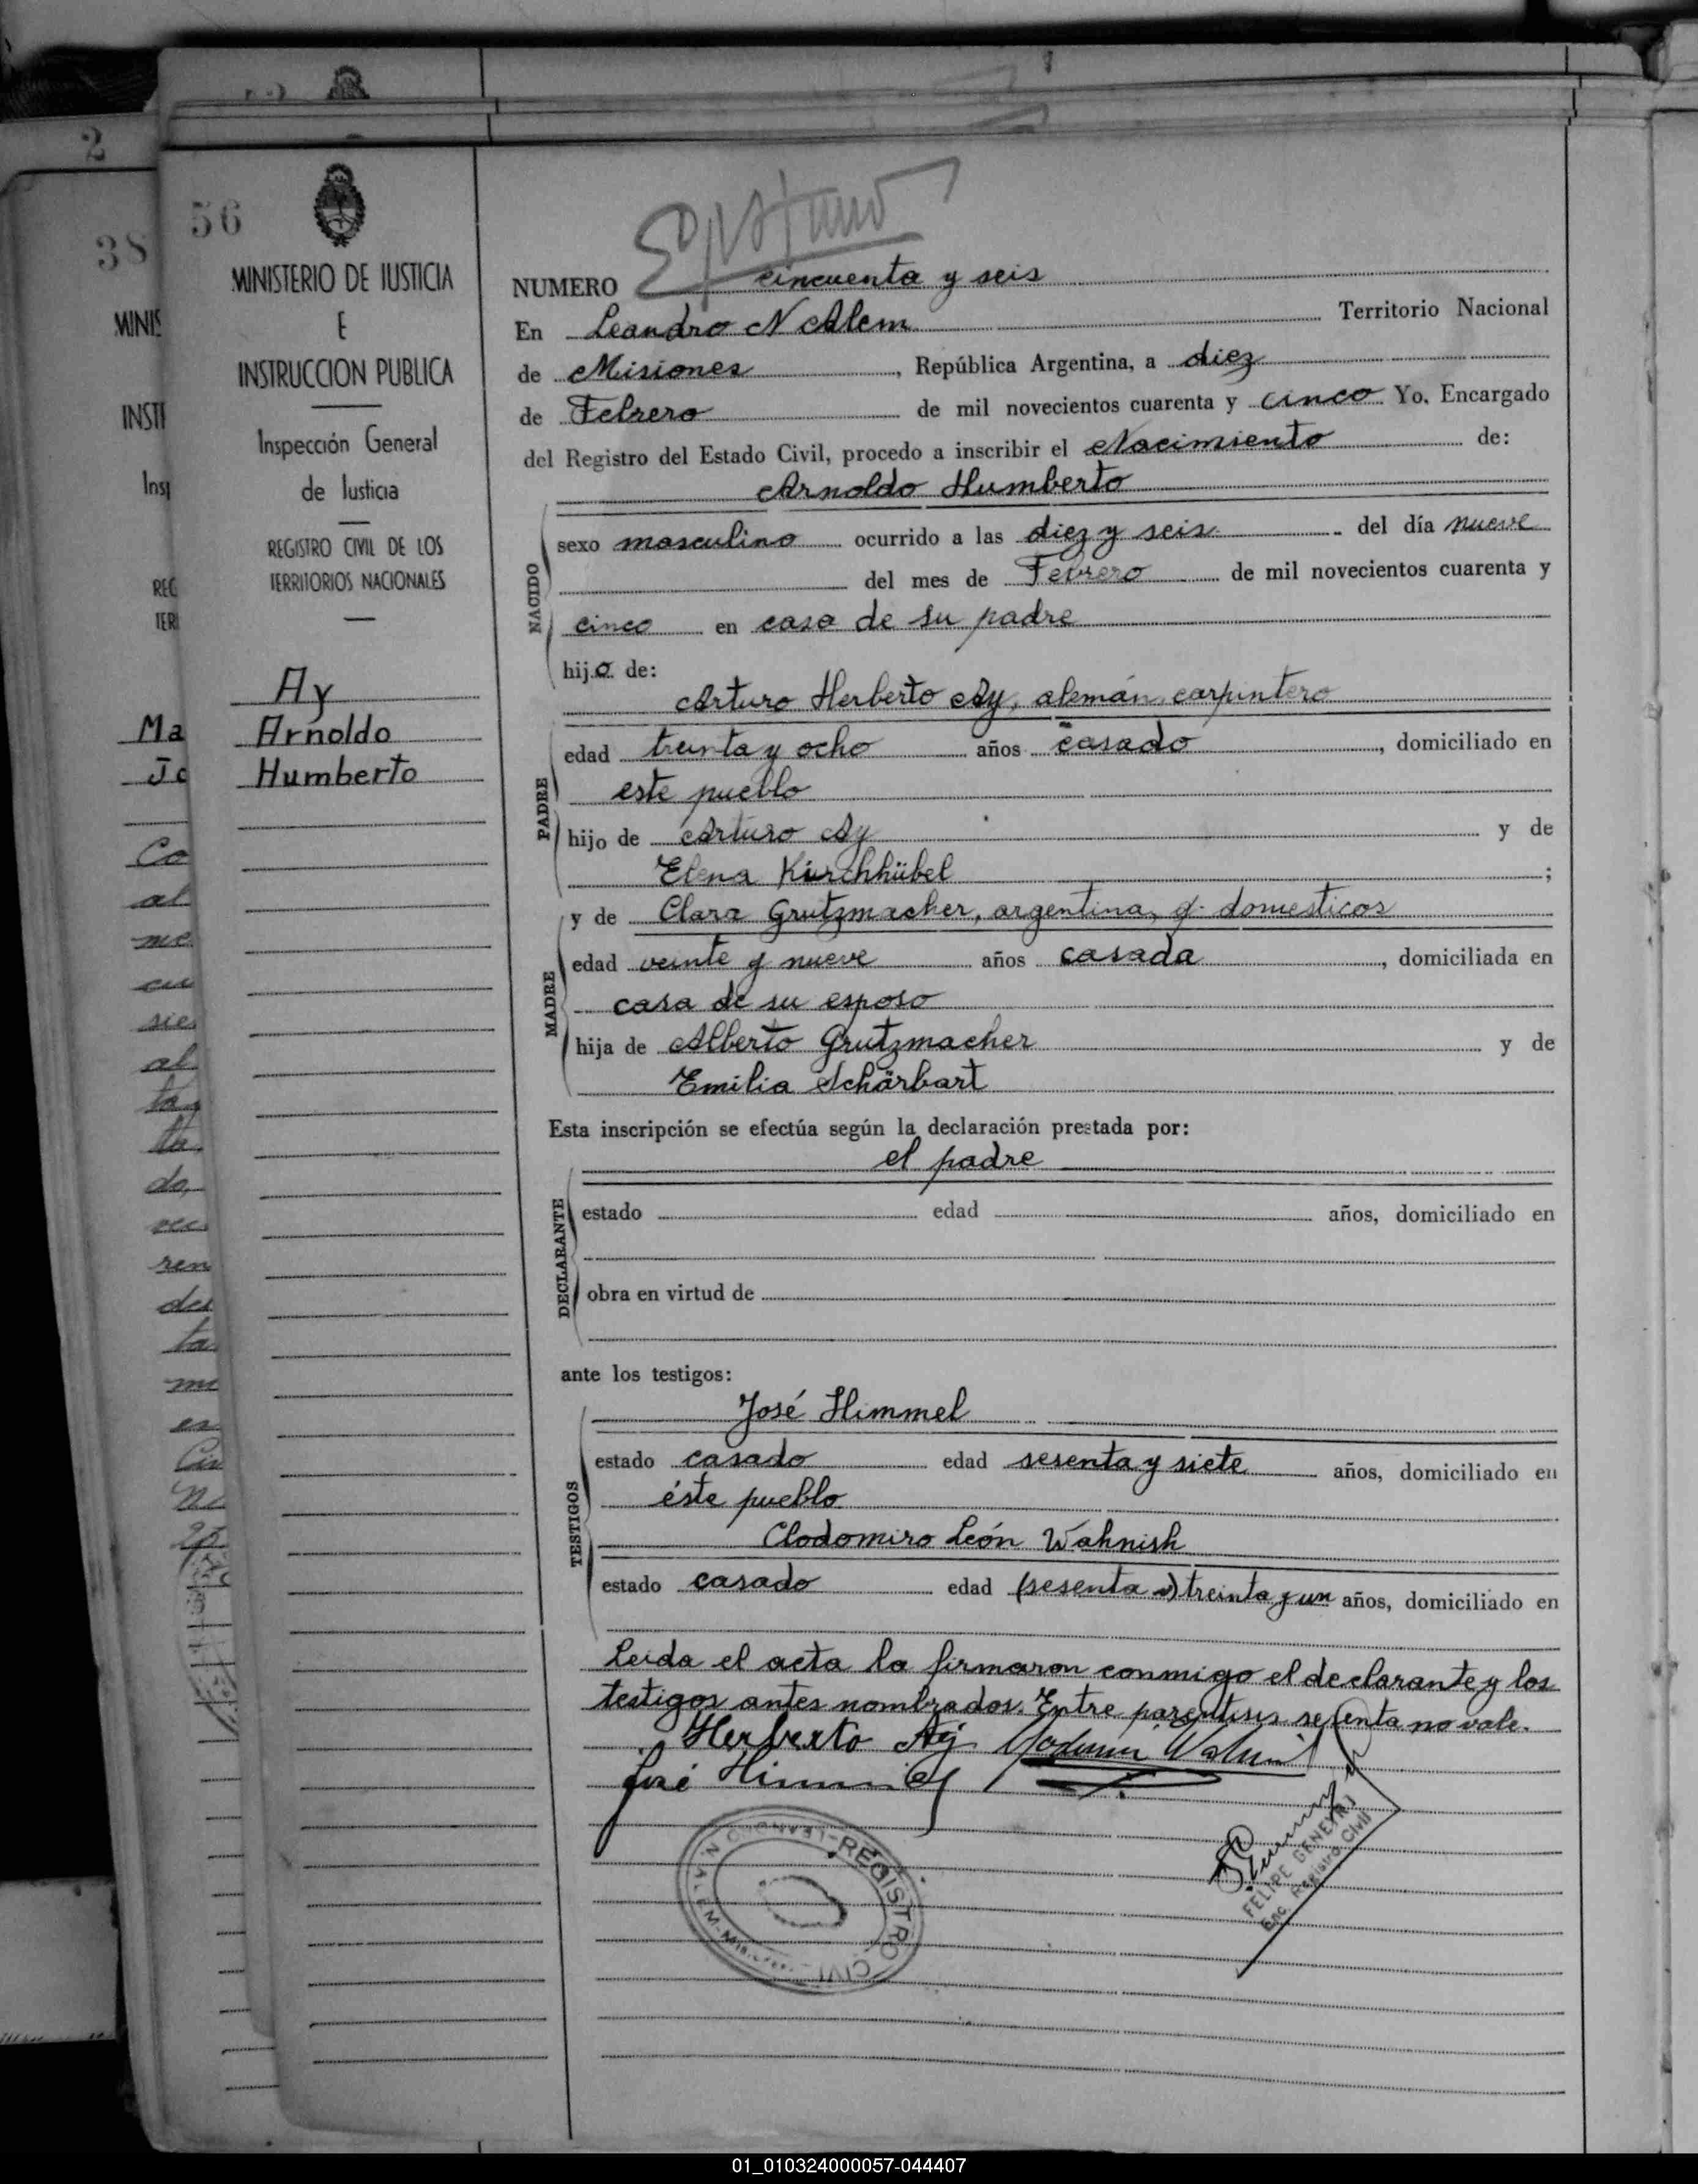 56
MINISTERIO DE JUSTICIA
E
INSTRUCCION PUBLICA
Inspección General
de Justicia
REGISTRO CIVIL DE LOS
TERRITORIOS NACIONALES
Ay
Arnoldo
Humberto
2
38
MINIS
INSTI
Insp
REG
TER
Ma
Jo
Co
al
me
cu
sie
al
ta
do,
ren
des
ta
es
NUMERO cincuenta y seis
En Leandro N Alem Territorio Nacional
de Misiones, República Argentina, a diez
de Febrero de mil novecientos cuarenta y cinco Yo, Encargado
del Registro del Estado Civil, procedo a inscribir el Nacimiento de:
Arnoldo Humberto
NACIDO
sexo masculino ocurrido a las diez y seis del día nueve
del mes de Febrero de mil novecientos cuarenta y
cinco en casa de su padre
hijo de:
Arturo Herberto Ay, alemán, carpintero
PADRE
edad treinta y ocho años casado, domiciliado en
este pueblo
hijo de Arturo Ay y de
Elena Kirchhübel;
y de Clara Grutzmacher, argentina, q. domesticos
MADRE
edad veinte y nueve años casada, domiciliada en
casa de su esposo
hija de Alberto Grutzmacher y de
Emilia Schärbart
Esta inscripción se efectúa según la declaración prestada por:
el padre
DECLARANTE
estado edad años, domiciliado en
obra en virtud de
ante los testigos:
José Himmel
TESTIGOS
estado casado edad sesenta y siete años, domiciliado en
éste pueblo
Clodomiro León Wahnish
estado casado edad (sesenta y) treinta y un años, domiciliado en
Leida el acta la firmaron conmigo el declarante y los
testigos antes nombrados. Entre parentisis sesenta no vale.
Herberto Ay
José Himmel
REGISTRO CIVIL
FELIPE GENEYRJ
Enc. Registro Civil
01_010324000057-044407